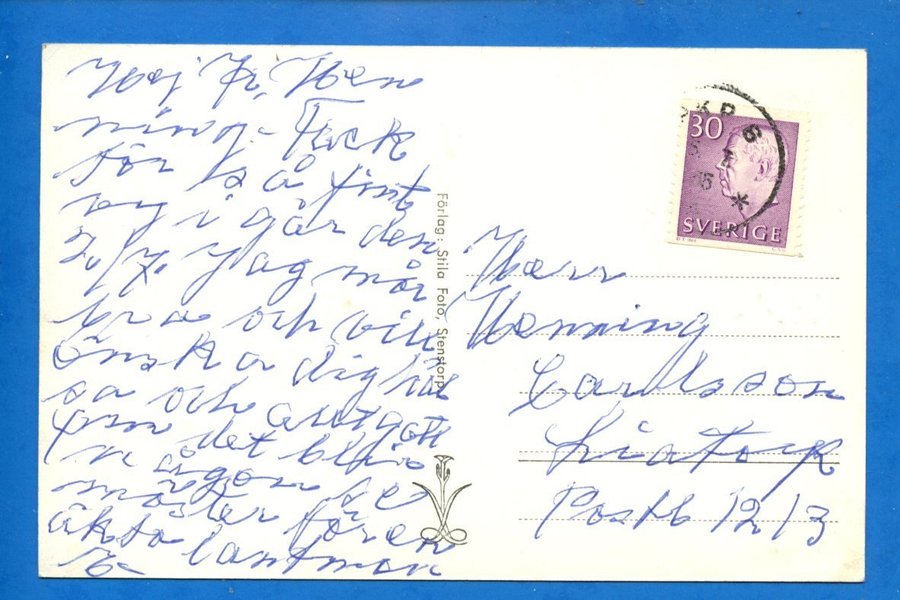 Hej Hr. Hen
ning. Tack
för så fint
i går den
2/7. Jag mår
bra och vill
önska dig häl
sa och allt gott
om det blir
någon
möster
äkta lantman
Förlag: Stila Foto, Stenstorp
30
SVERIGE
Herr
Henning
Carlsson
Liatorp
Postb 1213